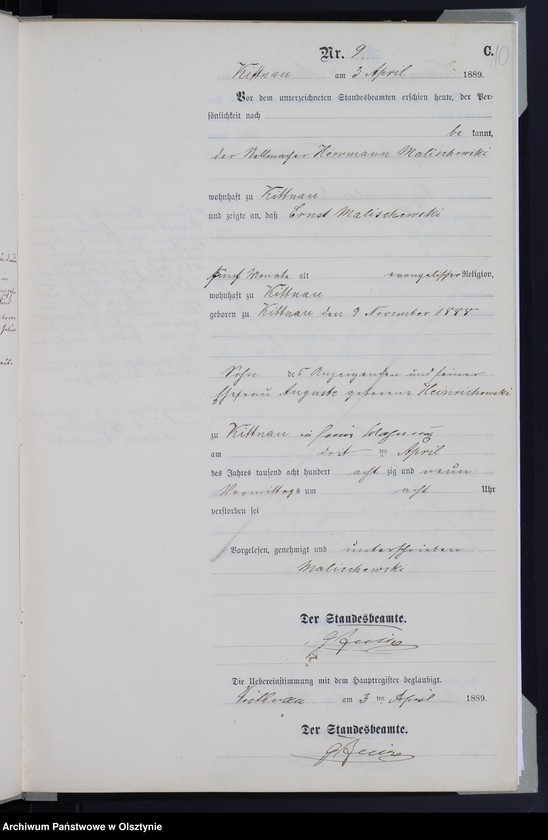 Nr. 9.
C.
10
Kittnau am 3 April 1889.
Vor dem unterzeichneten Standesbeamten erschien heute, der Per-
sönlichkeit nach
be kannt,
der Stellmacher Herrmann Malischewski
wohnhaft zu Kittnau
und zeigte an, daß Ernst Malischewski
fünf Monate alt evangelischer Religion,
wohnhaft zu Kittnau
geboren zu Kittnau den 9 November 1888
Sohn des Anzeigenden und seiner
Ehefrau Auguste geborene Heinrichowski
zu Kittnau in seiner Wohnung
am ten April
des Jahres tausend acht hundert acht zig und neun
Vormittags um acht Uhr
verstorben sei
Vorgelesen, genehmigt und unterschrieben
Malischewski
Der Standesbeamte.
Die Uebereinstimmung mit dem Hauptregister beglaubigt.
Kittnau am 3 ten April 1889.
Der Standesbeamte.
Archiwum Państwowe w Olsztynie